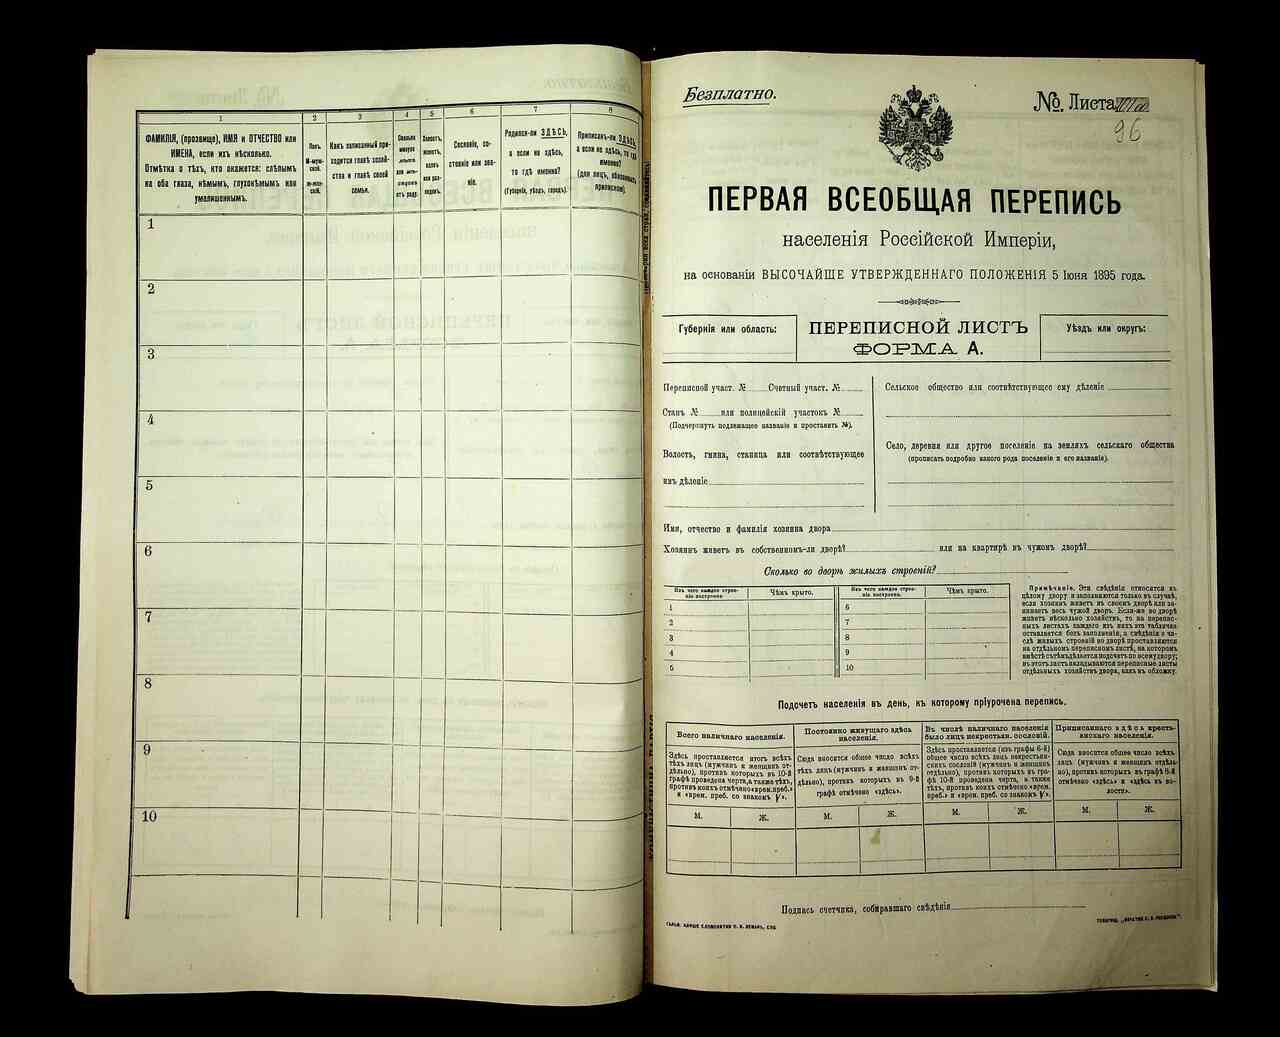 1 2 3 4 5 6 7 8
ФАМИЛІЯ, (прозвище), ИМЯ и ОТЧЕСТВО или
ИМЕНА, если ихъ нѣсколько.
Отмѣтка о тѣхъ, кто окажется: слѣпымъ
на оба глаза, нѣмымъ, глухонѣмымъ или
умалишеннымъ.
Полъ.
М-муж-
ской.
Ж-жен-
ской.
Какъ записанный при-
ходится главѣ хозяй-
ства и главѣ своей
семьи.
Сколько
минуло
лѣтъ
или мѣ-
сяцевъ
отъ роду.
Холостъ,
женатъ,
вдовъ
или раз-
веденъ.
Сословіе, со-
стояніе или зва-
ніе.
Родился-ли ЗДѢСЬ,
а если не здѣсь,
то гдѣ именно?
(Губернія, уѣздъ, городъ).
Приписанъ-ли ЗДѢСЬ,
а если не здѣсь, то гдѣ
именно?
(для лицъ, обязанныхъ
припиской).
1
2
3
4
5
6
7
8
9
10
Безплатно.
№. Листа
96
ПЕРВАЯ ВСЕОБЩАЯ ПЕРЕПИСЬ
населенія Россійской Имперіи,
на основаніи ВЫСОЧАЙШЕ УТВЕРЖДЕННАГО ПОЛОЖЕНІЯ 5 Іюня 1895 года.
Губернія или область:
ПЕРЕПИСНОЙ ЛИСТЪ
ФОРМА А.
Уѣздъ или округъ:
Переписной участ. № Счетный участ. №
Станъ № или полицейскій участокъ №
(Подчеркнуть подлежащее названіе и проставить №).
Волость, гмина, станица или соотвѣтствующее
имъ дѣленіе
Сельское общество или соотвѣтствующее ему дѣленіе
Село, деревня или другое поселеніе на земляхъ сельскаго общества
(прописать подробно какого рода поселеніе и его названіе).
Имя, отчество и фамилія хозяина двора
Хозяинъ живетъ въ собственномъ-ли дворѣ? или на квартирѣ въ чужомъ дворѣ?
Сколько во дворѣ жилыхъ строеній?
Изъ чего каждое строе-
ніе построено.
Чѣмъ крыто.
Изъ чего каждое строе-
ніе построено.
Чѣмъ крыто.
1 6
2 7
3 8
4 9
5 10
Примѣчаніе. Эти свѣдѣнія относятся къ
цѣлому двору и заполняются только въ случаѣ,
если хозяинъ живетъ въ своемъ дворѣ или за-
нимаетъ весь чужой дворъ. Если-же во дворѣ
живетъ нѣсколько хозяйствъ, то на перепис-
ныхъ листахъ каждаго изъ нихъ эта табличка
оставляется безъ заполненія, а свѣдѣнія о чи-
слѣ жилыхъ строеній во дворѣ проставляются
на отдѣльномъ переписномъ листѣ, на которомъ
вмѣстѣ съ тѣмъ дѣлается подсчетъ по всему двору;
въ этотъ листъ вкладываются переписные листы
отдѣльныхъ хозяйствъ двора, какъ въ обложку.
Подсчетъ населенія въ день, къ которому пріурочена перепись.
Всего наличнаго населенія.
Постоянно живущаго здѣсь
населенія.
Въ числѣ наличнаго населенія
было лицъ некрестьян. сословій.
Приписаннаго здѣсь кресть-
янскаго населенія.
Здѣсь проставляется итогъ всѣхъ
тѣхъ лицъ (мужчинъ и женщинъ от-
дѣльно), противъ которыхъ въ 10-й
графѣ проведена черта, а также тѣхъ,
противъ коихъ отмѣчено «врем. преб.»
и «врем. преб. со знакомъ V».
Сюда вносится общее число всѣхъ
тѣхъ лицъ (мужчинъ и женщинъ от-
дѣльно), противъ которыхъ въ 9-й
графѣ отмѣчено «здѣсь».
Здѣсь проставляется (изъ графы 6-й)
общее число всѣхъ лицъ некрестьян-
скихъ сословій (мужчинъ и женщинъ
отдѣльно), противъ которыхъ въ гра-
фѣ 10-й проведена черта, а также
тѣхъ, противъ коихъ отмѣчено «врем.
преб.» и «врем. преб. со знакомъ V».
Сюда вносится общее число всѣхъ
лицъ (мужчинъ и женщинъ отдѣль-
но), противъ которыхъ въ графѣ 8-й
отмѣчено «здѣсь» и «здѣсь въ во-
лости».
М. Ж. М. Ж. М. Ж. М. Ж.
Подпись счетчика, собиравшаго свѣдѣнія